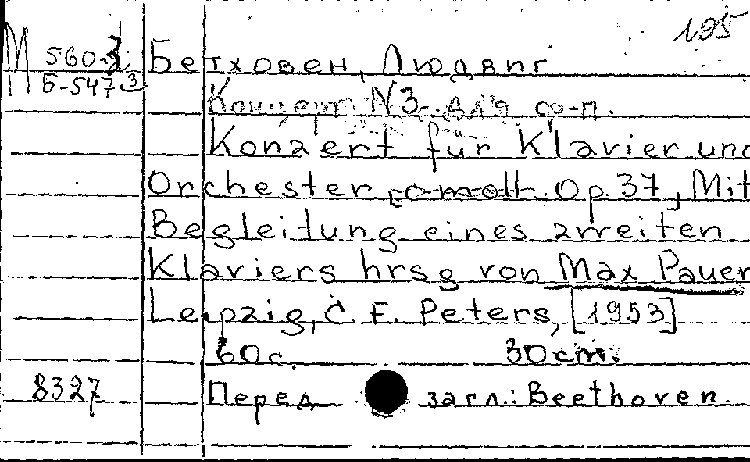 195
М 560-3 Бетховен, Людвиг
Б-547 3
Концерт N3 для ф-п.
Konzert für Klavier und
Orchester c-moll. Op. 37, Mit
Begleitung eines zweiten
Klaviers hrsg von Max Pauer
Leipzig, C. F. Peters, [1953]
60с. 30cm.
8327 Перед загл.: Beethoven.